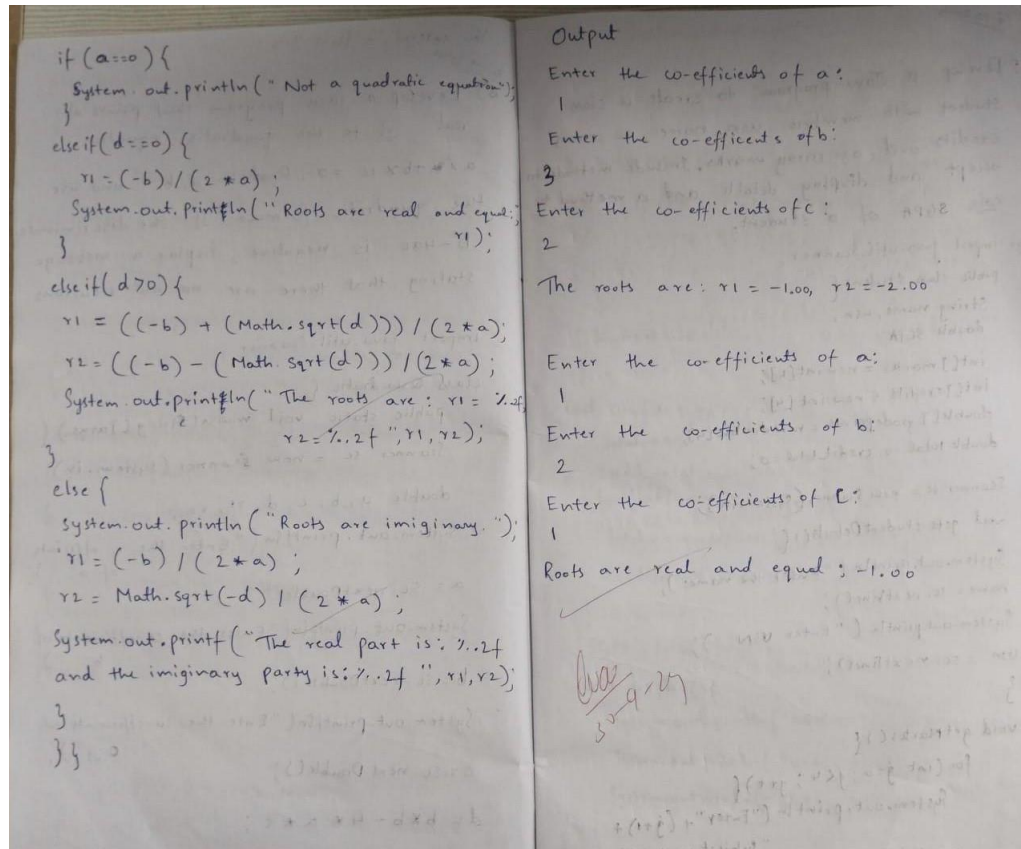 if (a==0) {
System. out. println (" Not a quadratic equation");
}
else if (d==0) {
r1 = (-b) / (2 * a) ;
System.out. println (" Roots are real and equal:;
r1);
}
else if (d>0) {
r1 = ((-b) + (Math.sqrt(d))) / (2*a);
r2 = ((-b) - (Math. sqrt (d))) / (2*a) ;
System.out.println (" The roots are : r1 = %.2f,
r2 = %.2f ", r1, r2);
}
else {
System. out. println ("Roots are imiginary. ");
r1 = (-b) / (2*a) ;
r2 = Math.sqrt (-d) / (2 * a) ;
System.out.printf ("The real part is: %.2f
and the imiginary party is: %.2f ", r1, r2);
}
} }
Output
Enter the co-efficients of a:
1
Enter the co-efficents of b:
3
Enter the co-efficients of c :
2
The roots are: r1 = -1.00, r2 = -2.00
Enter the co-efficients of a:
1
Enter the co-efficients of b:
2
Enter the co-efficients of C:
1
Roots are real and equal ; -1.00